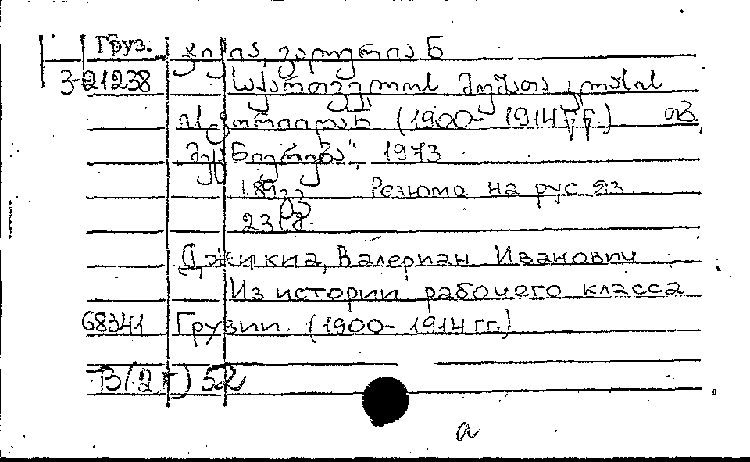 Груз. ჯიქია, ვალერიან
3-21238 საქართველოს მუშათა კლასის
ისტორიიდან (1900-1914 წწ.) თბ.
"მეცნიერება", 1973
189 გვ. Резюме на рус. яз.
Джикиа, Валериан Иванович
Из истории рабочего класса
68341 Грузии. (1900-1914 гг.)
В(2Г)52
а